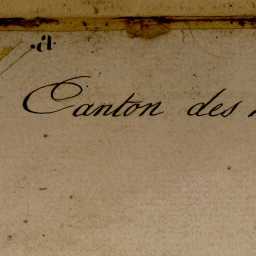 a
Canton des